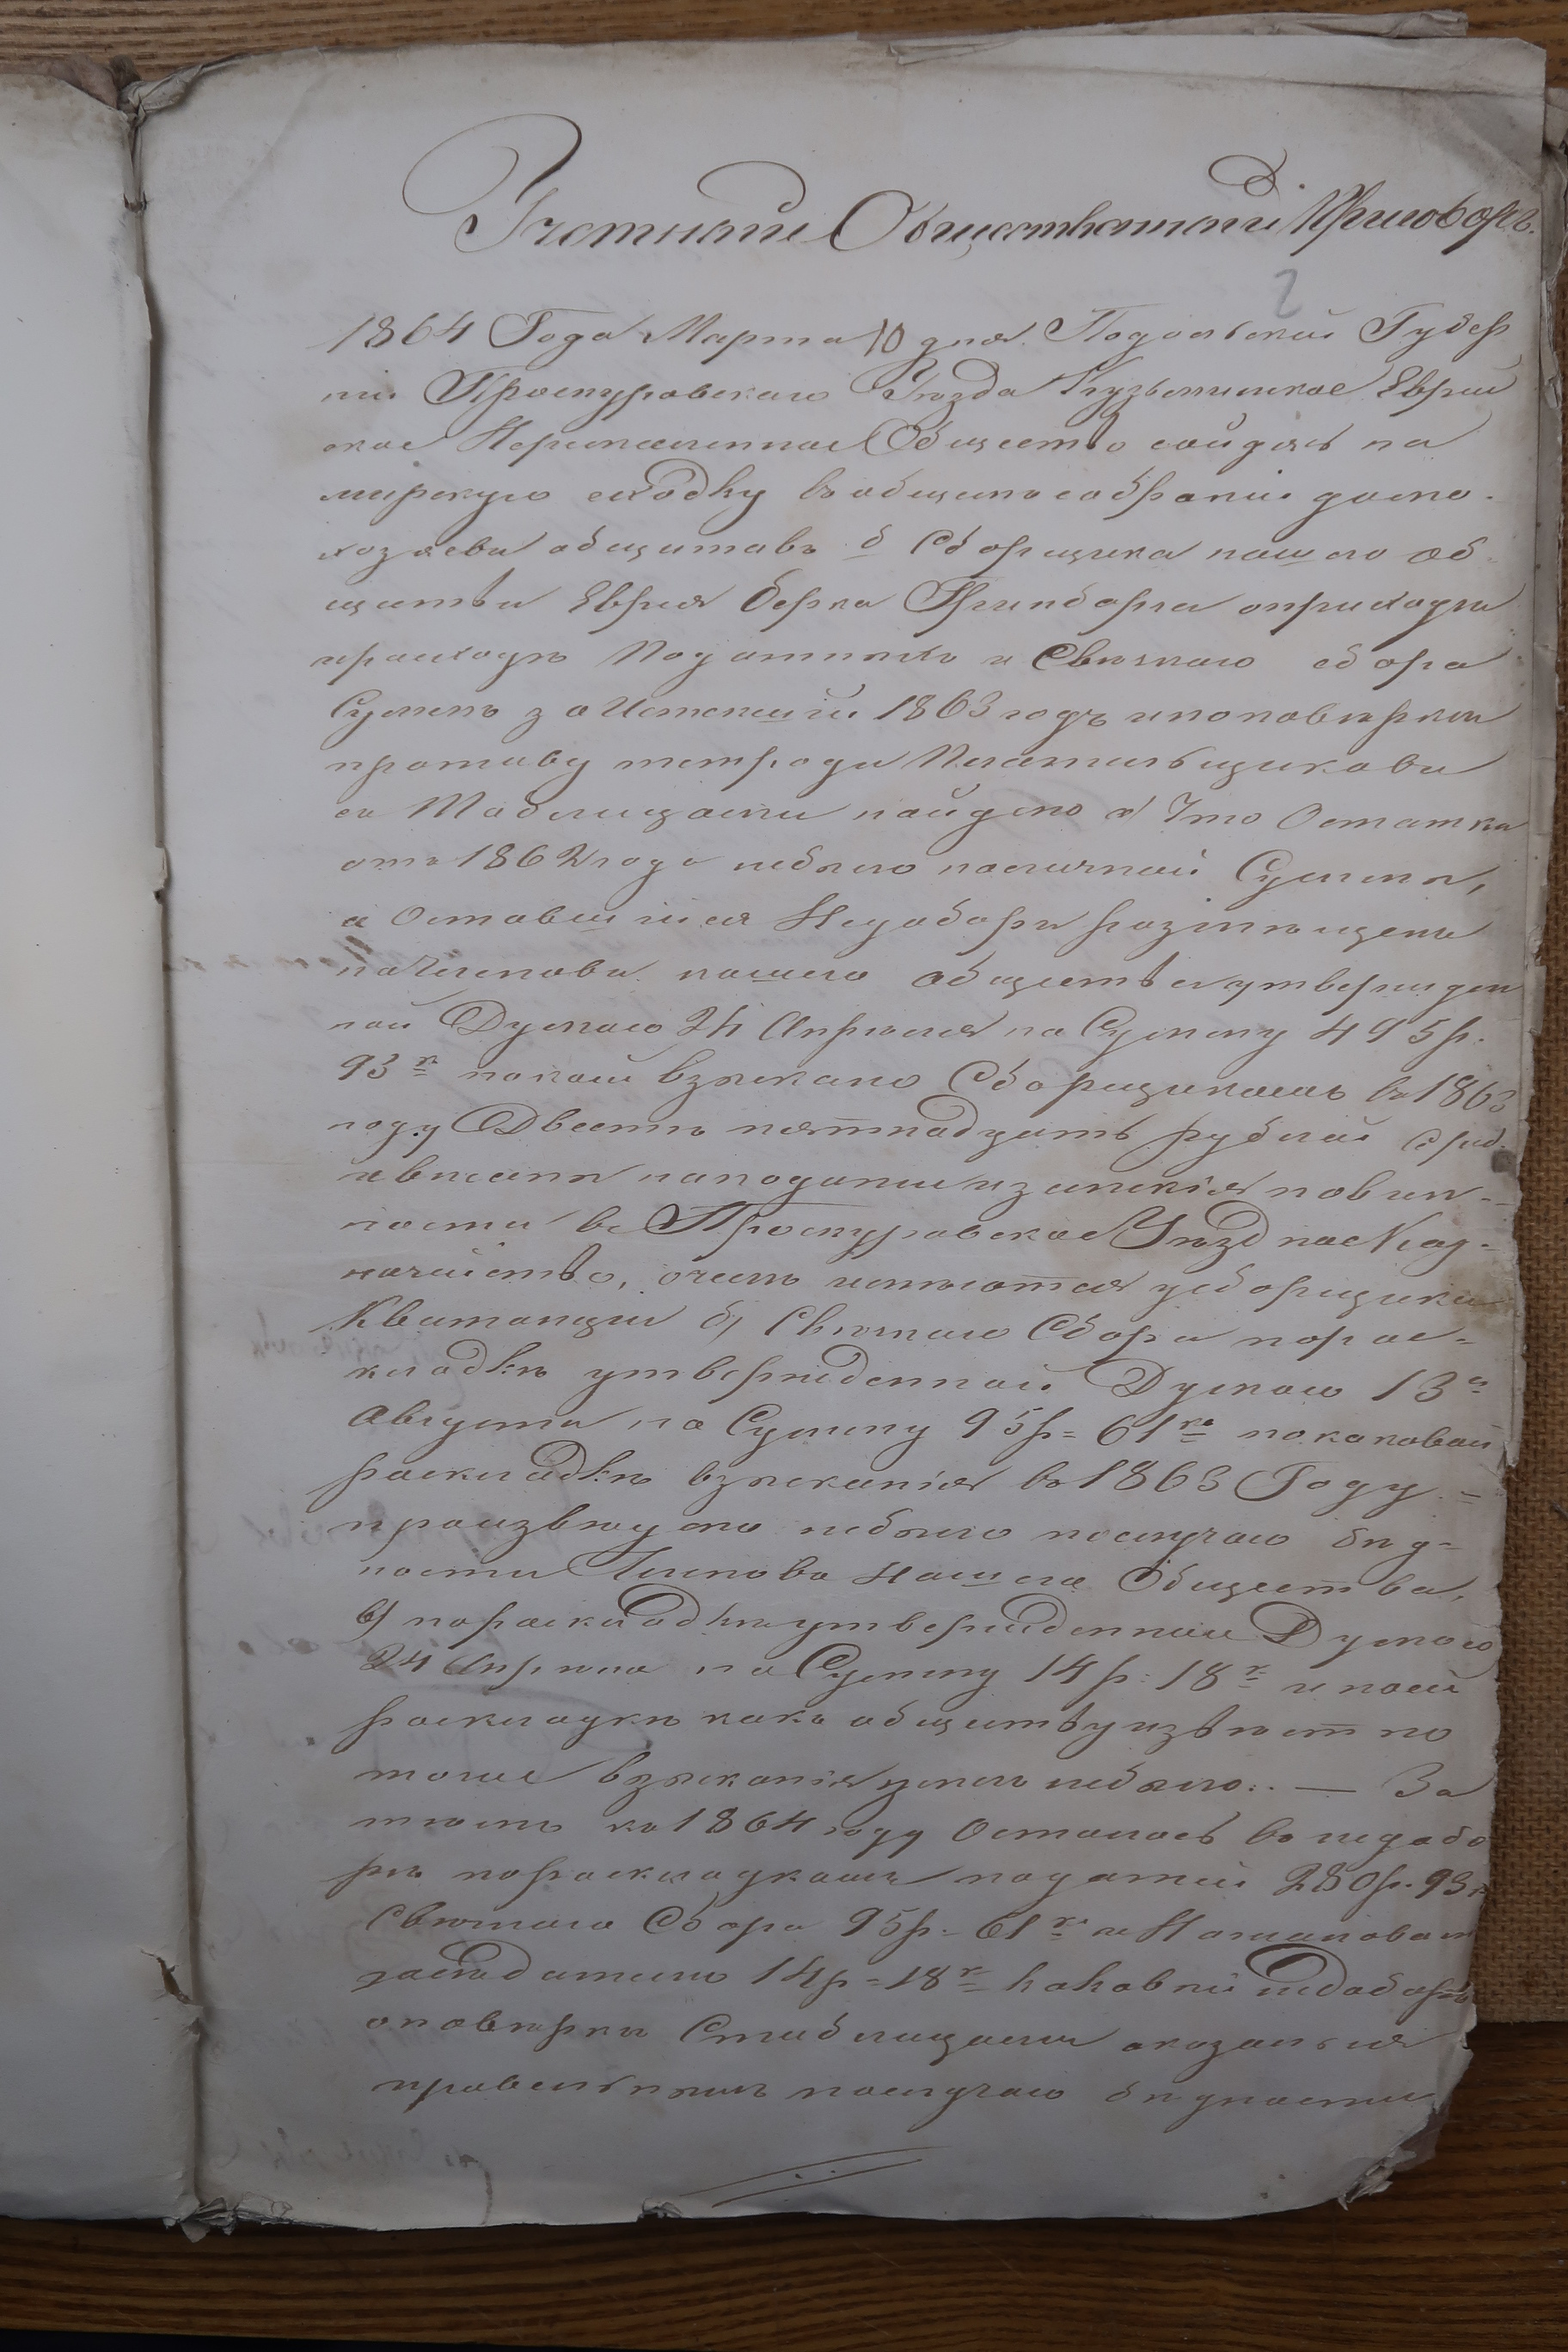 Учетный Общественный Приговоръ.
2
1864 Года Марта 10 дня. Подольской Губер
ніи Проскуровскаго Уѣзда Кузьминское Еврей
ское Общество сойдясь на
мирскую сходку въ общемъ собраніи домо-
хозяевъ Сборщика нашего об
щества Еврея Берка Гринберга о приходѣ
и расходѣ Податныхъ и Свѣчнаго сбора
Суммъ за Истекшій 1863 годъ и по повѣркѣ
противу тетради Плательщиковъ
съ Таблицами найдено а) Что Остатка
отъ 1862 года небыло наличной Суммы,
а Оставшіися Недоборы
начленовъ нашего общества утвержден
ной Думою 24 Апрѣля на Сумму 495 р.
93 к покоей взыскано Сборщикомъ въ 1863
году Двѣсти пятнадцать рублей сереб.
и внесены наподати и земскія повин-
ности въ Проскуровское Уѣздное Каз-
начейство, очемъ имѣются у сборщика
Квитанціи б) Свѣчнаго Сбора порас-
кладкѣ утвержденной Думою 13го
Августа на Сумму 95 р= 61 ко покаковой
раскладкѣ взысканія въ 1863 Году =
произведено небыло послучаю бѣд-
ности Членовъ Нашего Общества,
в) пораскладкѣ утвержденной Думою
24 Апрѣля на Сумму 14 р: 18 к и поей
раскладкѣ какъ обществу извѣстно
тоже взысканія небыло. — За
тѣмъ къ 1864 году Осталось въ недобо
рѣ пораскладкамъ податей 280 р. 93 к
Свѣчнаго Сбора 95 р= 61 к и
14 р= 18 к каковый недоборъ
по повѣркѣ Стаблицами оказался
правельнымъ послучаю бѣдности